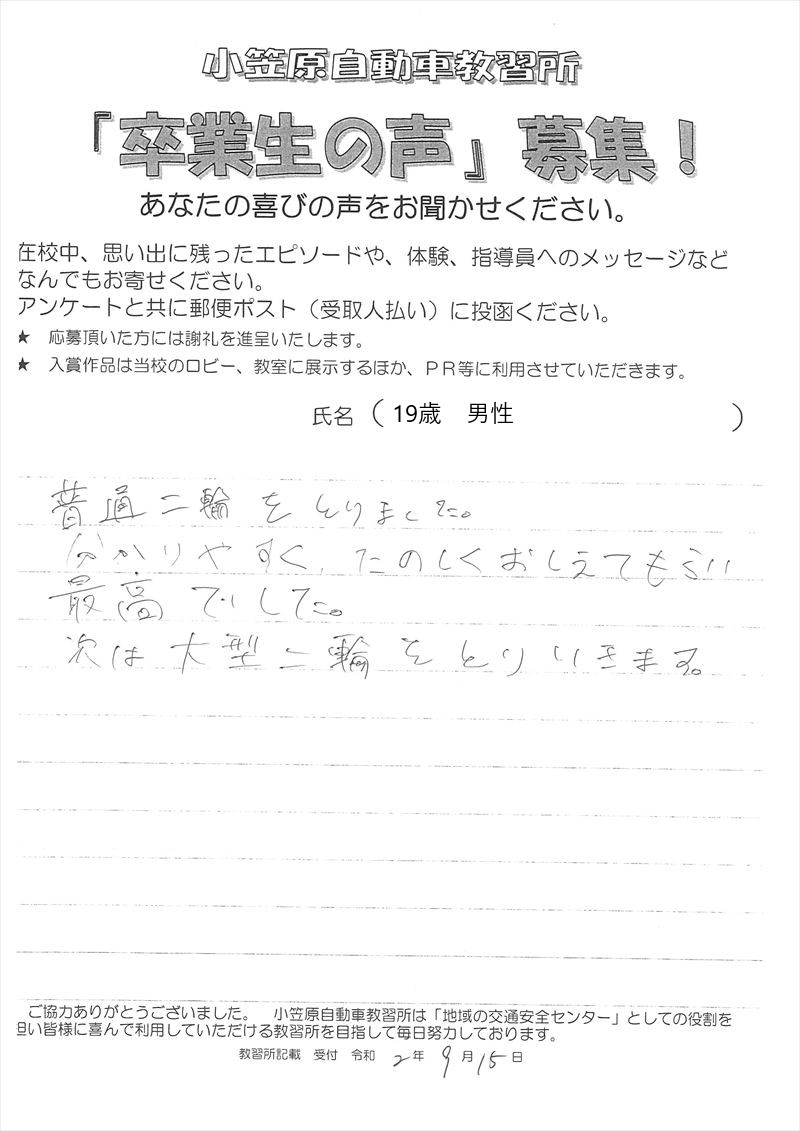 小笠原自動車教習所
「卒業生の声」募集！
あなたの喜びの声をお聞かせください。
在校中、思い出に残ったエピソードや、体験、指導員へのメッセージなど
なんでもお寄せください。
アンケートと共に郵便ポスト（受取人払い）に投函ください。
★　応募頂いた方には謝礼を進呈いたします。
★　入賞作品は当校のロビー、教室に展示するほか、ＰＲ等に利用させていただきます。
氏名（19歳　男性　）
普通二輪をとりました。
分かりやすく、たのしくおしえてもらい
最高でした。
次は大型二輪をとりいきます。
ご協力ありがとうございました。　小笠原自動車教習所は「地域の交通安全センター」としての役割を
担い皆様に喜んで利用していただける教習所を目指して毎日努力しております。
教習所記載　受付　令和　2年　9月15日